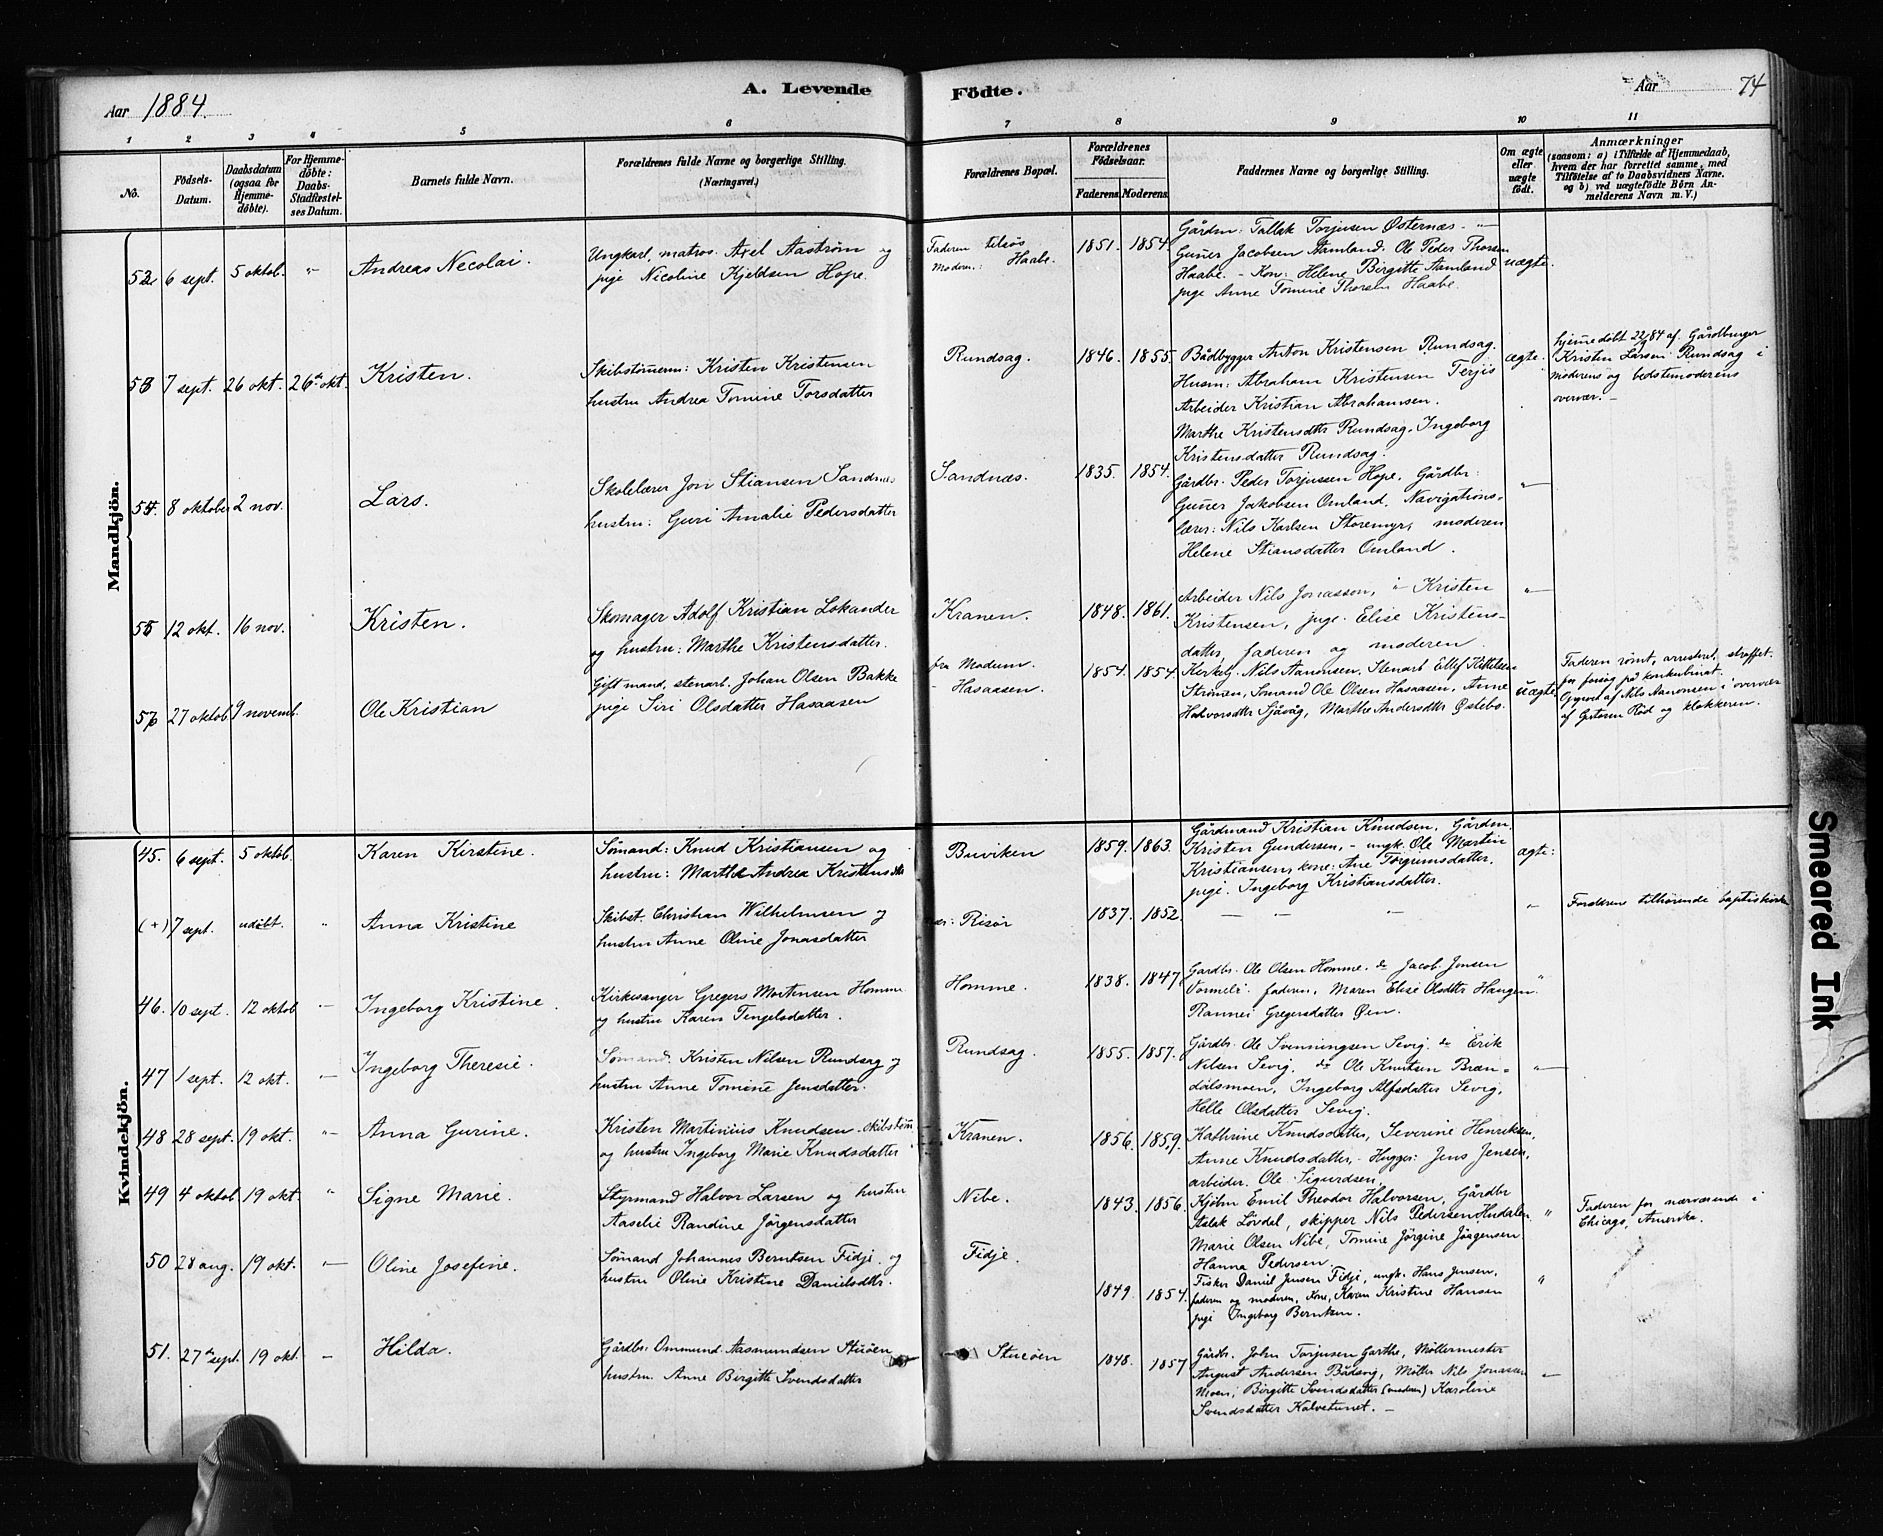 Aar 1884.
A. Levende Födte.
Aar
74
1 2 3 4 5 6 7 8 9 10 11
No.
Födsels-Datum.
Daabsdatum (ogsaa for Hjemme-döbte).
For Hjemme-döbte: Daabs-Stadfæstel-ses Datum.
Barnets fulde Navn.
Forældrenes fulde Navne og borgerlige Stilling. (Næringsvei.)
Forældrenes Bopæl.
Forældrenes Födselsaar.
Faderens
Moderens
Faddernes Navne og borgerlige Stilling.
Om ægte eller uægte födt.
Anmærkninger
(saasom: a) i Tilfælde af Hjemmedaab, hvem der har forrettet samme, med Tilföielse af to Daabsvidners Navne, og b) ved uægtefödte Börn Anmelderens Navn m. V.)
Mandkjön.
52 6 sept. 5 oktob. " Andreas Necolai.
Ungkarl, matros. Axel Aaström og
pige Nicoline Kjeldsen Hope.
Faderen tilsøs
Moderen: Haabe.
1851. 1854.
Gårdm: Tallak Torjusen Østernæs. -"-
Guner Jacobsen Aamland. Ole Peder Thorsen
Haabe. - Kon: Helene Birgitte Aamland
pige Anne Tomine Thorsen Haabe.
uægte.
53 7 sept. 26 okt. 26de okt. Kristen.
Skibstømerm: Kristen Kristensen
hustru Andrea Tomine Torsdatter
Rundsag.
1846. 1855.
Bådbygger Anton Kristensen Rundsag.
Husm: Abraham Kristensen Terjis
Arbeider Kristian Abrahamsen.
Marthe Kristensdtr Rundsag. Ingeborg
Kristensdatter Rundsag.
ægte.
hjemedøbt 22/9 84 af. Gårdbruger
Kristen Larsen Rundsag i
moderens og bedstemoderens
overvær. -
54. 8 oktober 2 nov. Lars.
Skolelærer Jon Stiansen Sandnæs
hustru: Guri Amalie Pedersdatter
Sandnæs.
1835. 1854.
Gårdbr. Peder Torjussen Hope, Gårdbr:
Guner Jakobsen Omland, Navigations-
lærer: Nils Karlsen Storemyr, moderen
Helene Stiansdatter Omland.
-"-
55 12 okt. 16 nov. Kristen.
Skomager Adolf Kristian Lokander
og hustru: Marthe Kristensdatter.
Kranen.
1848. 1861.
Arbeider Nils Jonassen, -"- Kristen
Kristensen, pige. Elise Kristens-
datter, faderen og moderen
-"-
56 27 oktob. 9 novemb. Ole Kristian
Gift mand, stenarb. Johan Olsen Bakke
pige Siri Olsdatter Hasaasen
fra Modum.
- Hasaasen.
1854. 1854.
Kirkelg. Nils Aanonsen, Stenarb Ellef Kittelsen
Strömen, Sömand Ole Olsen Hasaasen, Anne
Halvorsdtr Sjåvåg, Marthe Andersdtr Østebö.
uægte
Faderen römt, arresteret, straffet.
for forsøg på konkubinat.
Opgivet af Nils Aanonsen i overvær
af Gutoren Röd og klokkeren.
Kvindekjön.
45. 6 sept. 5 oktob. Karen Kirstine.
Sømand: Knud Kristiansen og
hustru: Marthe Andrea Kristensdtr
Buviken
1859. 1863.
Gårdmand Kristian Knudsen, Gårdm.
Kristen Gundersen, - ungk. Ole Martin
Kristiansen, kone: Ane Torgrimsdatter,
pige. Ingeborg Kristiansdatter.
ægte:
(+) 7 sept. udøbt. " Anna Kristine
Skibst. Christian Wilhelmsen og
hustru Anne Oline Jonasdatter
nær: Risør
1837. 1852.
- - - -
"
Forældrene tilhørende baptistkirke
46. 10 sept. 12 oktob - Ingeborg Kristine.
Kirkesanger Gregers Mortensen Homme
og hustru Karen Tengelsdatter.
Homme.
1838. 1847.
Gårdbr. Ole Olsen Homme. do Jacob Jensen
Vormeli. faderen, Maren Elise Olsdtr Haugen.
Rannei Gregersdatter Øen.
"
47 1 sept. 12 okt. - Ingeborg Theresie.
Sømand. Kristen Nilsen Rundsag og
hustru Anne Tomine Jensdatter.
Rundsag.
1855. 1857.
Gårdbr. Ole Svenningsen Sevig. do Erik
Nilsen Sevig, do Ole Knutsen Bræn-
dalsmoen, Ingeborg Alfsdatter Sevig,
Helle Olsdatter Sevig.
-"-
48 28 sept. 19 okt. "- Anna Gurine.
Kristen Martinius Knudsen. skibstøm
og hustru Ingeborg Marie Knudsdatter
Kranen.
1856. 1859.
Kathrine Knudsdatter, Severine Henriksen,
Anne Knudsdatter, - Hugger: Jens Jensen,
arbeider. Ole Sigurdsen,
49 4 oktob. 19 okt. " Signe Marie.
Styrmand Halvor Larsen og hustru
Aaselie Randine Jørgensdatter
Nibe.
1843. 1856.
Kjøbm Emil Theodor Halvorsen, Gårdbr
Aslak Lövdal, skipper Nils Pedersen Hudalen
Marie Olsen Nibe, Tomine Jørgine Jørgensen
Hanna Pedersen
"
Faderen for nærværende i
Chicago, Amerika.
50 28 aug. 19 okt. - Oline Josefine.
Sømand Johannes Berntsen Fidje. og
hustru Oline Kristine Danielsdtr.
Fidje.
1849. 1854.
Fisker Daniel Jensen Fidje, ungk. Hans Jensen,
faderen og moderen, Kone, Karen Kristine Hansen
pige Ingeborg Berntsen.
"
51. 27de sept. 19 okt. - Hilda.
Gårdbr. Ommund Aasmundsen Stuöen
hustru. Anne Birgitte Svendsdatter
Stueöen
1848. 1857
Gårdb. John Torjusen Garthe, Möllermester
August Andersen Bådsvig, Møller Nils Jonassen
Moen; Birgitte Svendsdatter (moderen) Karoline
Svendsdatter Kalvetunet. -
-"-
Smeared Ink